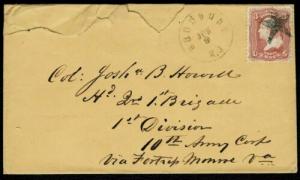 Col: Josh B. Howell
Hd. Qrs 1st Brigade
1st Division
10th Army Corps
Via Fortress Monroe Va